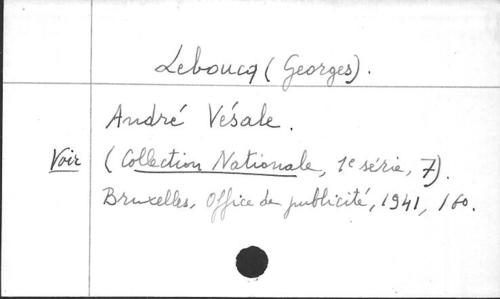 Leboucq (Georges).
André Vésale.
Voir (Collection Nationale, 1e série, 7).
Bruxelles, Office de publicité, 1941, 160.